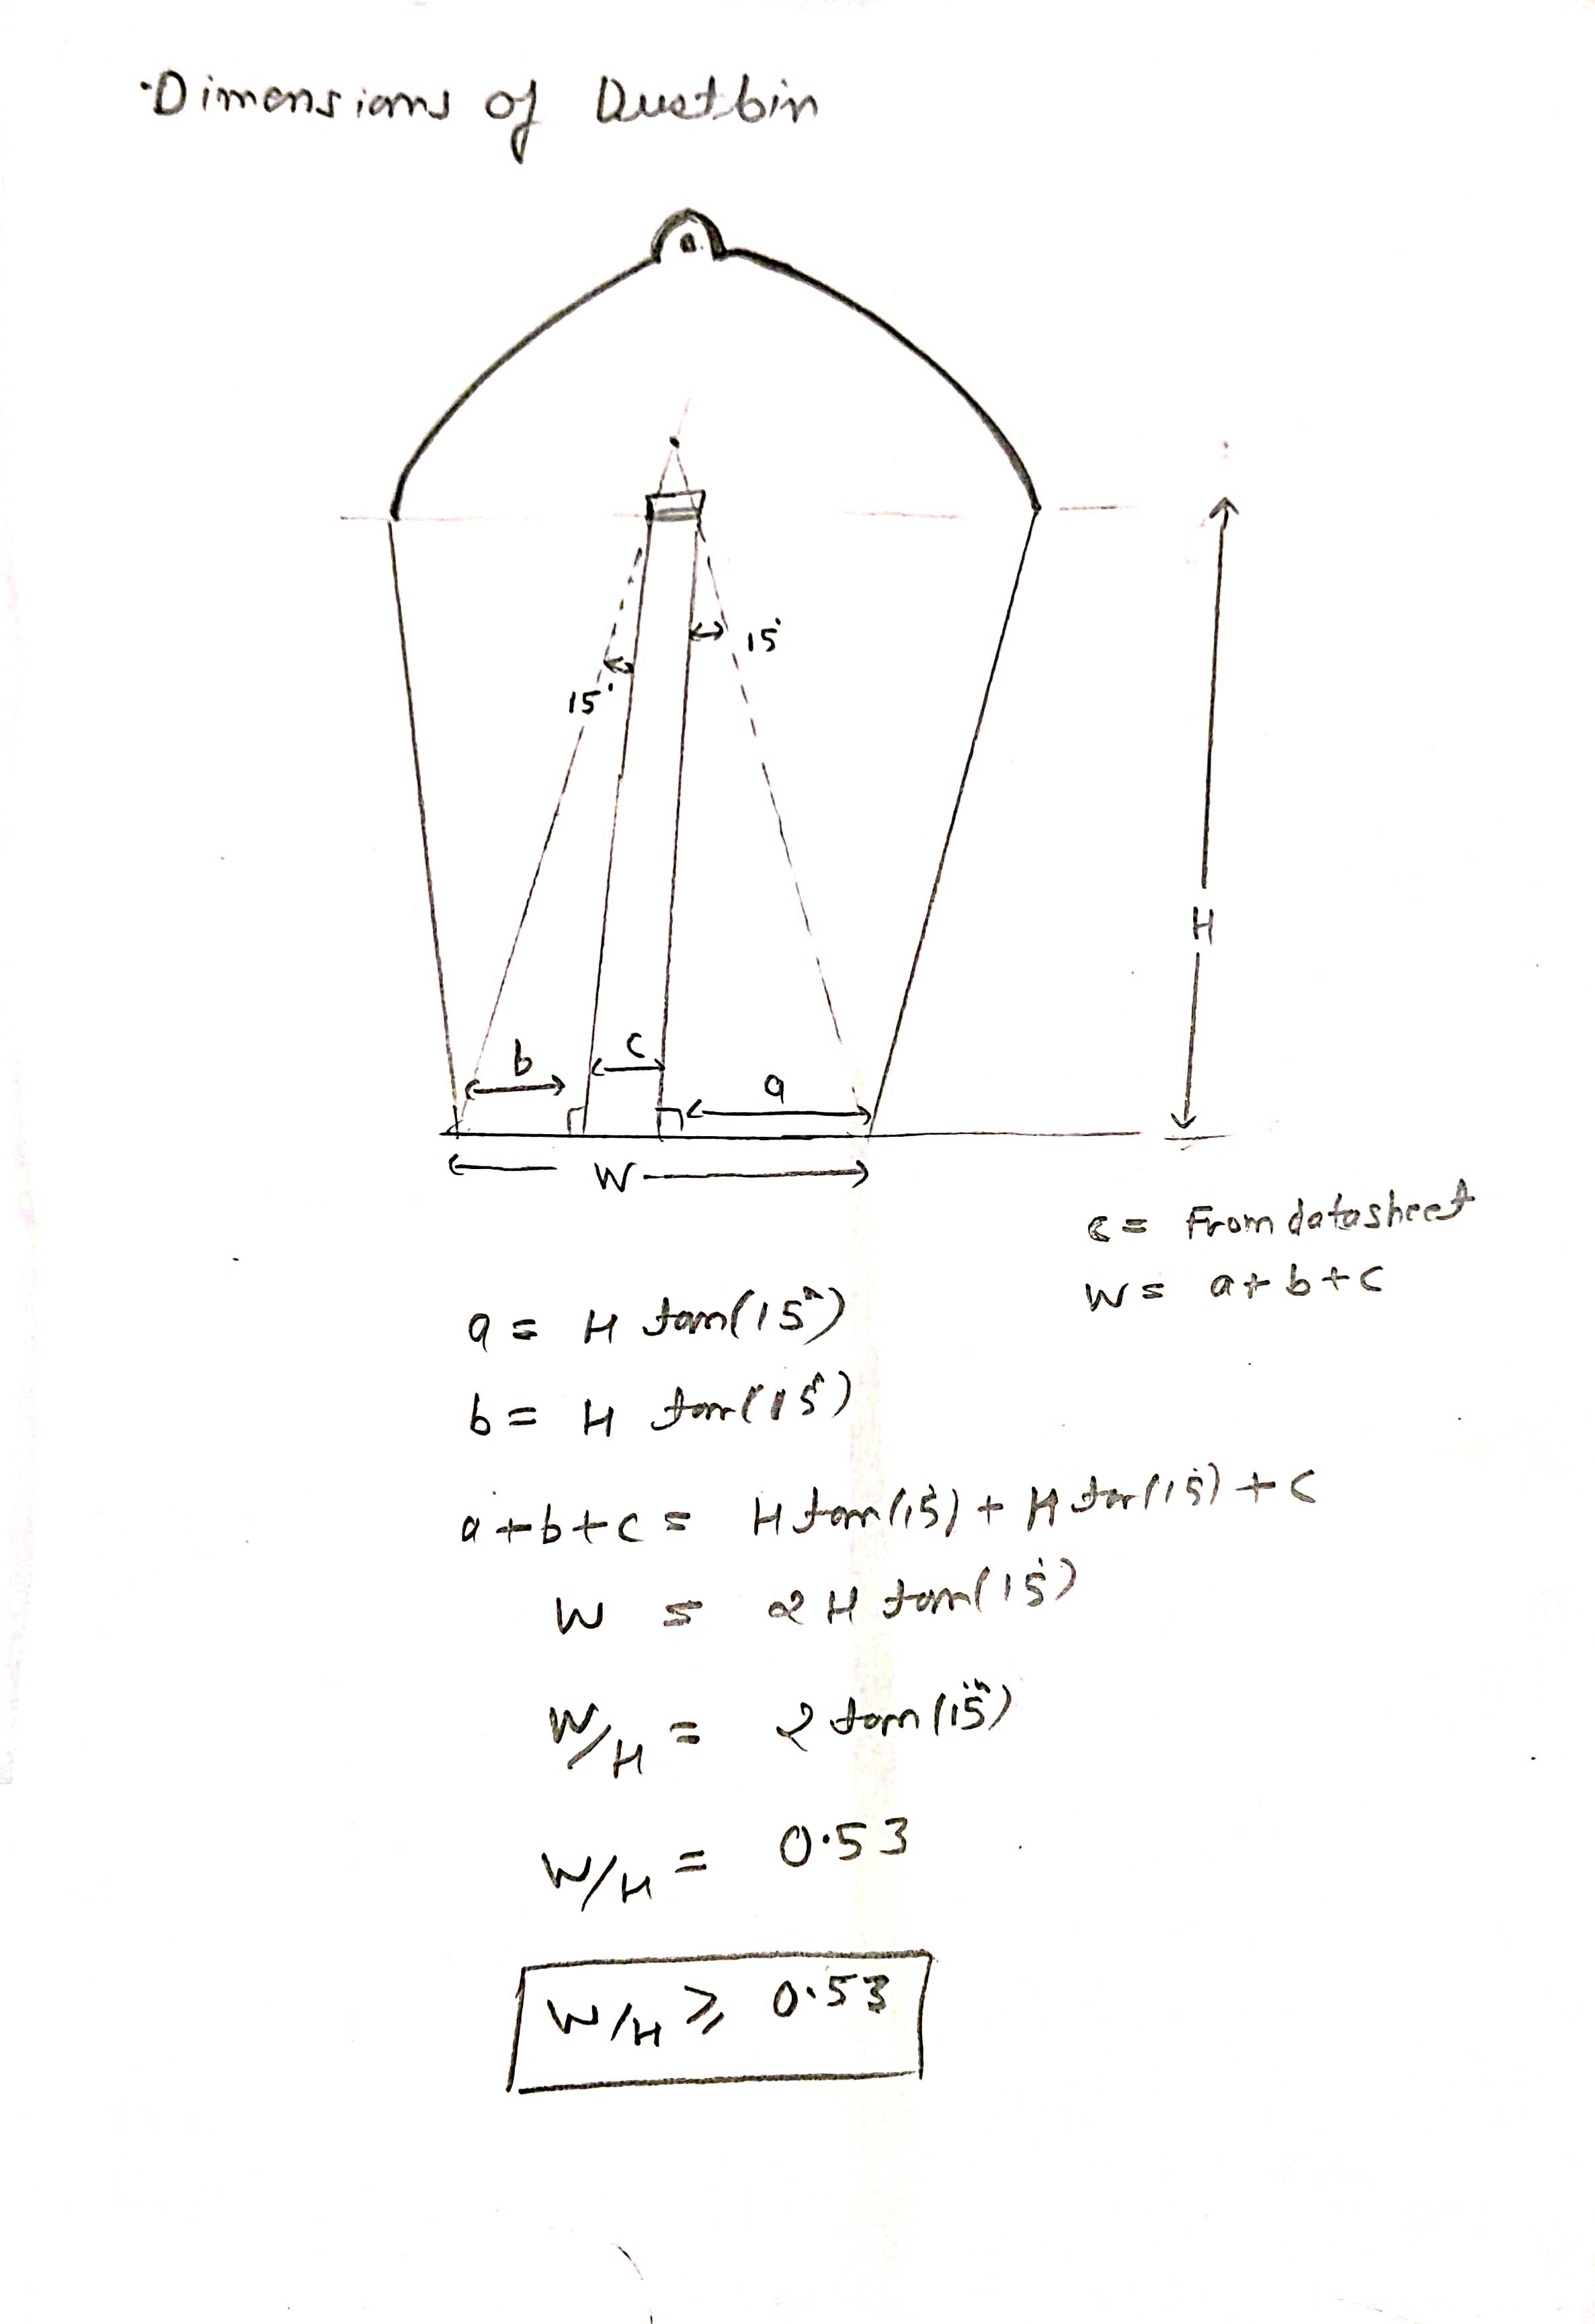 Dimensions of Dustbin
15°
15°
H
b
c
a
W
c = From datasheet
W = a + b + c
a = H tan(15°)
b = H tan(15°)
a + b + c = H tan(15°) + H tan(15°) + c
W = 2 H tan(15°)
W/H = 2 tan(15°)
W/H = 0.53
W/H ≥ 0.53